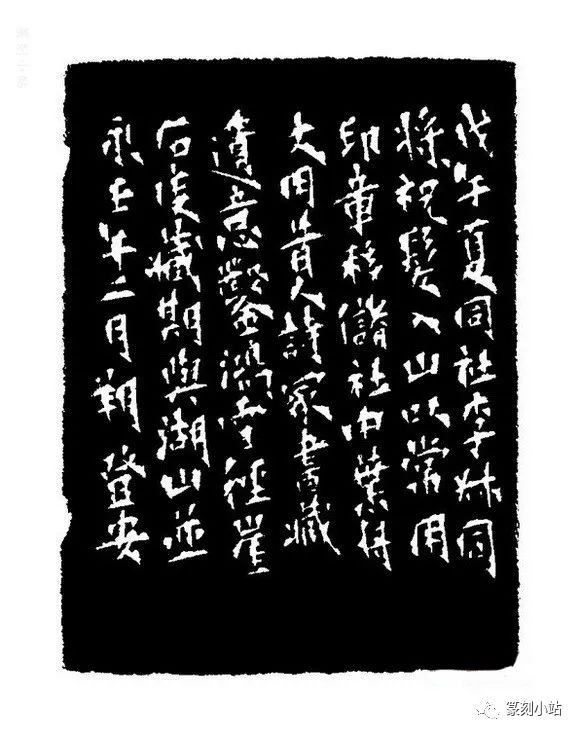 戊午夏同社李叔同
將祝髮入山以常用
印章移儲社中葉
用昔人詩冢書藏
遺意鑿鴻雪徑崖
石庋藏期與湖山並
永壬午二月朔登安
篆刻小站
篆刻小站